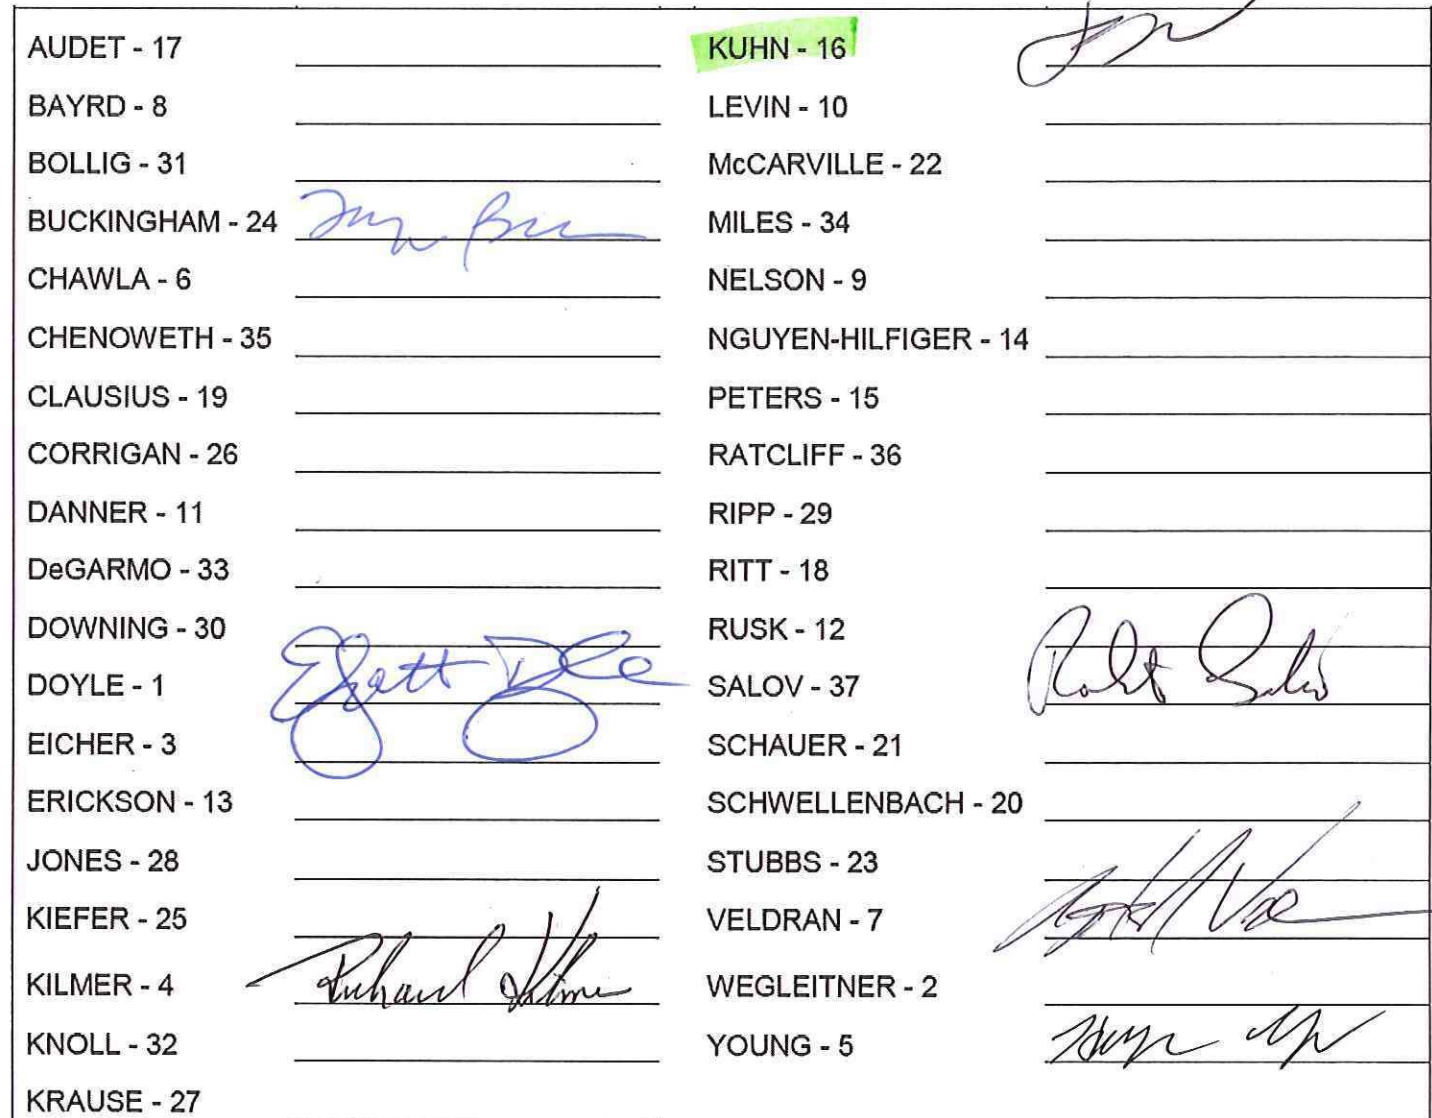 AUDET - 17
BAYRD - 8
BOLLIG - 31
BUCKINGHAM - 24
CHAWLA - 6
CHENOWETH - 35
CLAUSIUS - 19
CORRIGAN - 26
DANNER - 11
DeGARMO - 33
DOWNING - 30
DOYLE - 1
EICHER - 3
ERICKSON - 13
JONES - 28
KIEFER - 25
KILMER - 4 Richard Kilmer
KNOLL - 32
KRAUSE - 27
KUHN - 16
LEVIN - 10
McCARVILLE - 22
MILES - 34
NELSON - 9
NGUYEN-HILFIGER - 14
PETERS - 15
RATCLIFF - 36
RIPP - 29
RITT - 18
RUSK - 12
SALOV - 37
SCHAUER - 21
SCHWELLENBACH - 20
STUBBS - 23
VELDRAN - 7
WEGLEITNER - 2
YOUNG - 5